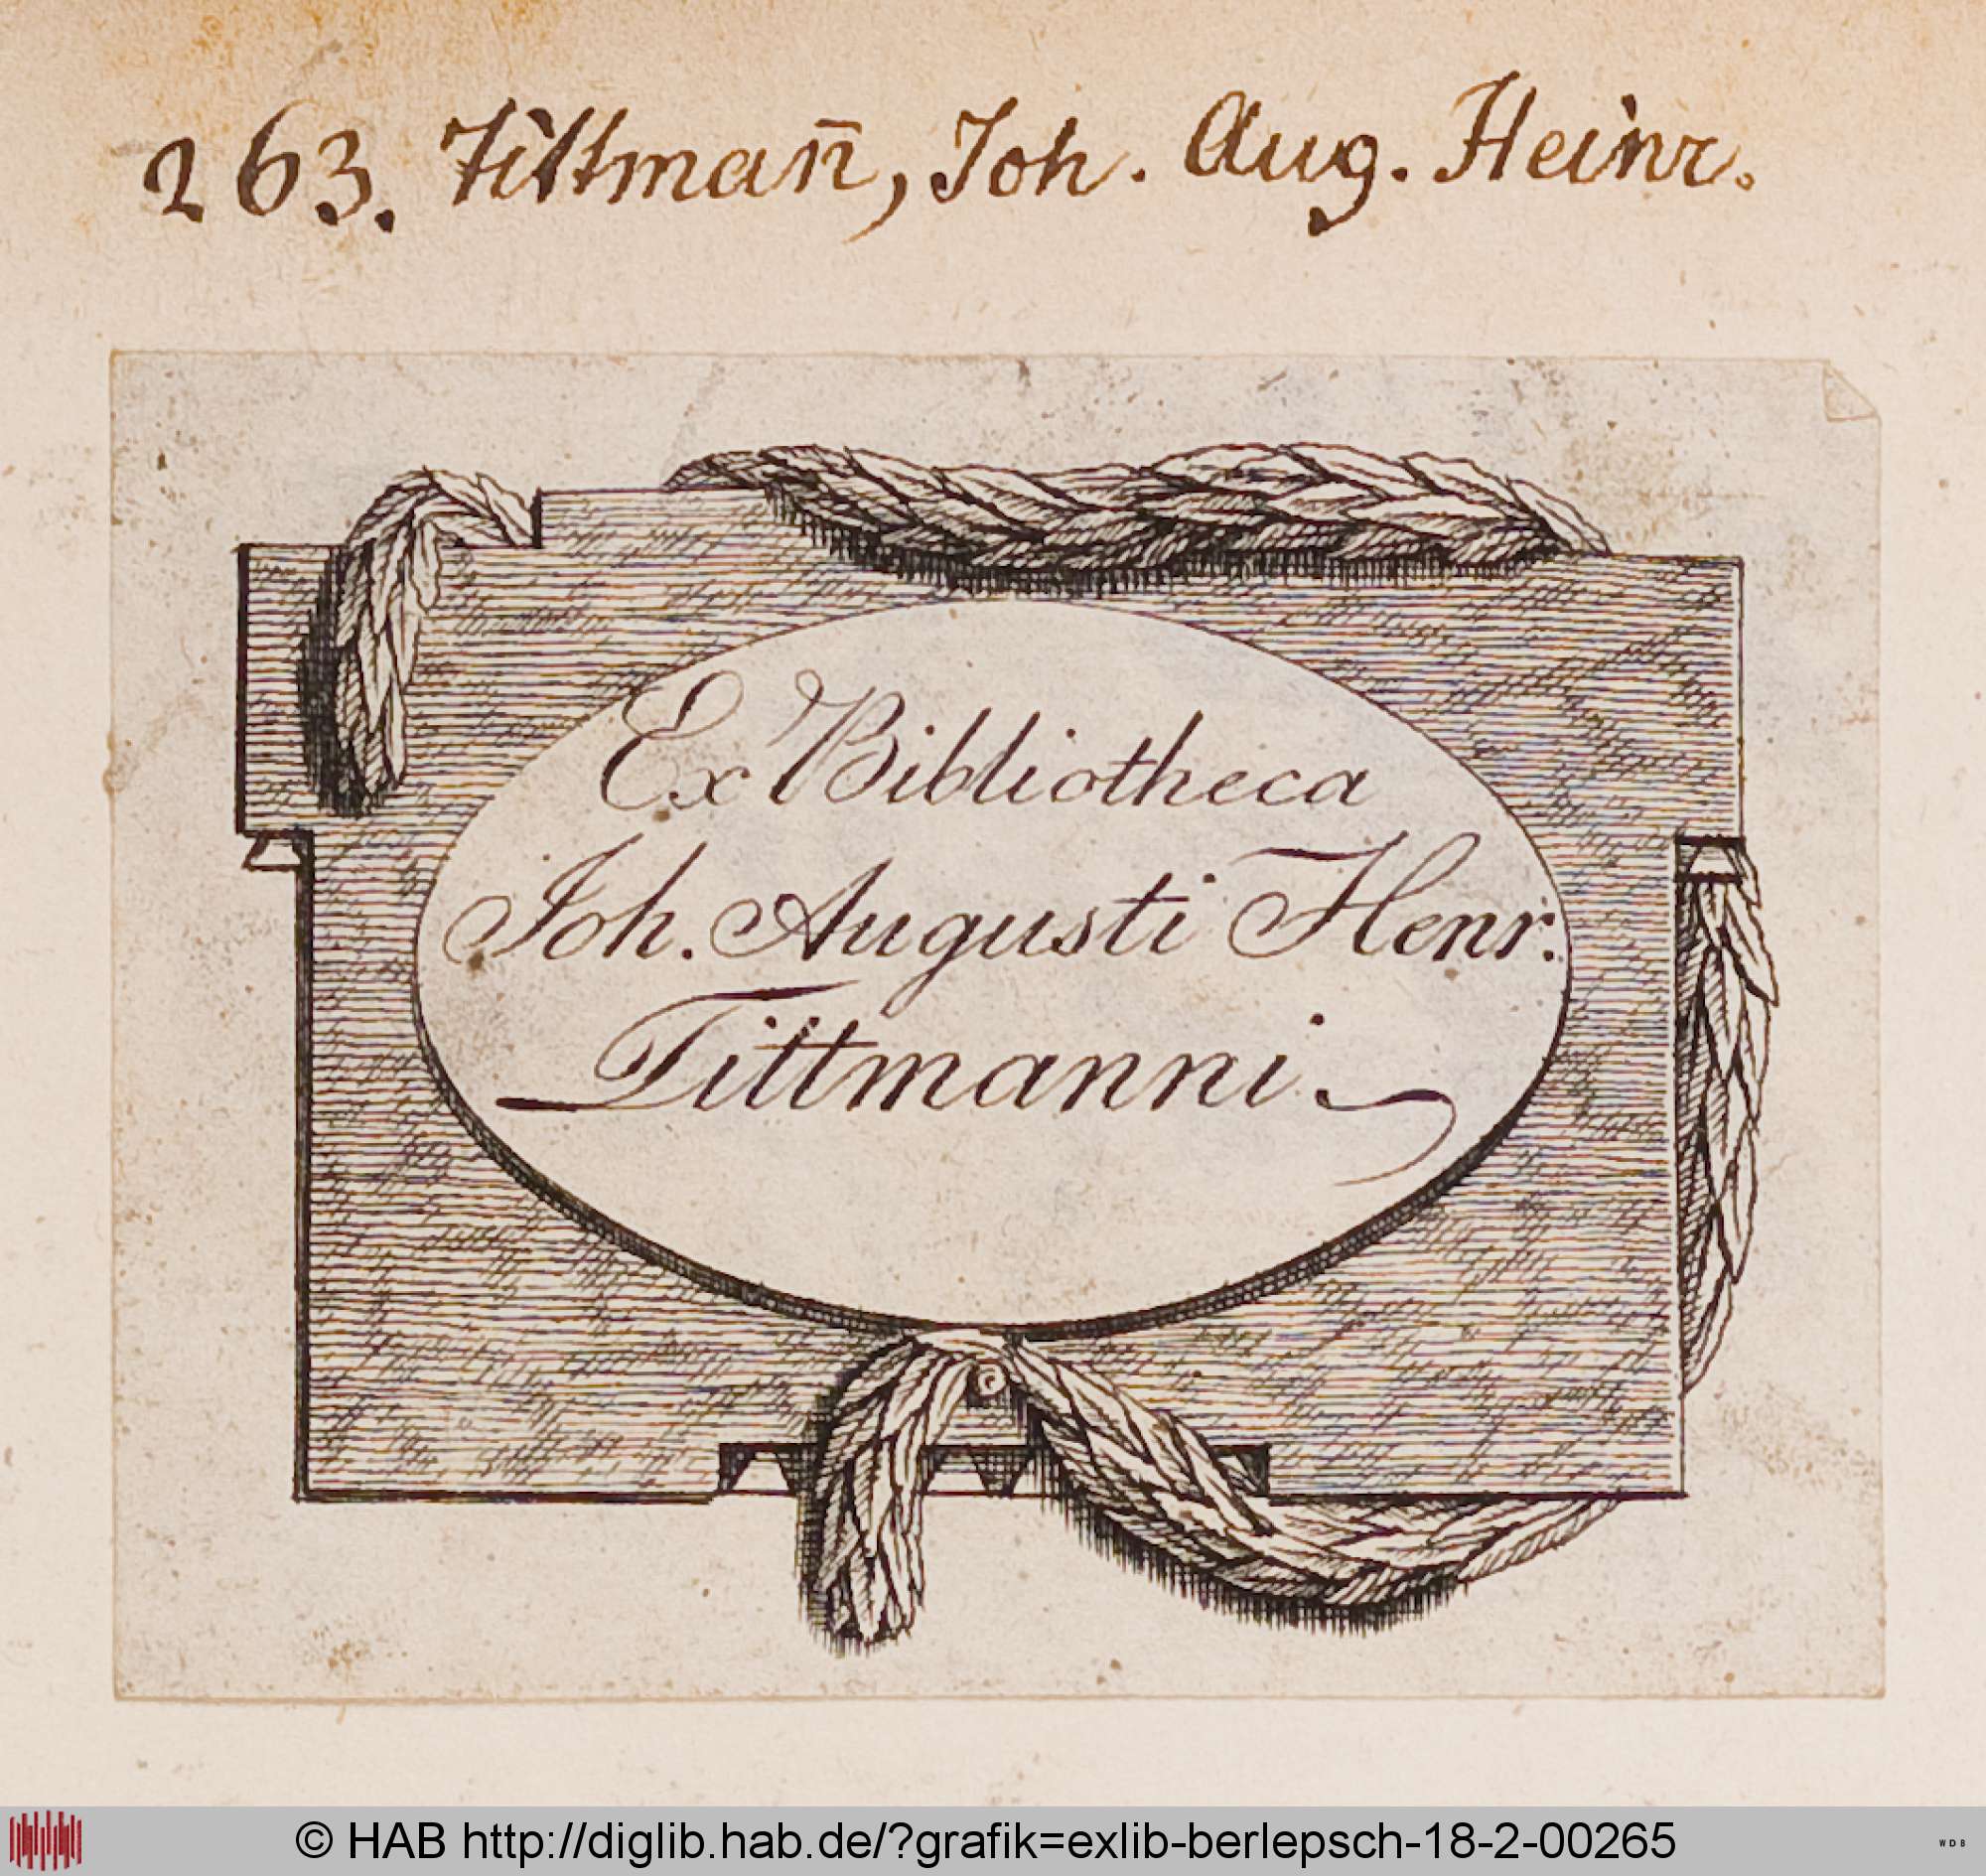 263. Tittman̄, Joh. Aug. Heinr.
Ex Bibliotheca
Joh. Augusti Henr.
Tittmanni
© HAB http://diglib.hab.de/?grafik=exlib-berlepsch-18-2-00265
WDB